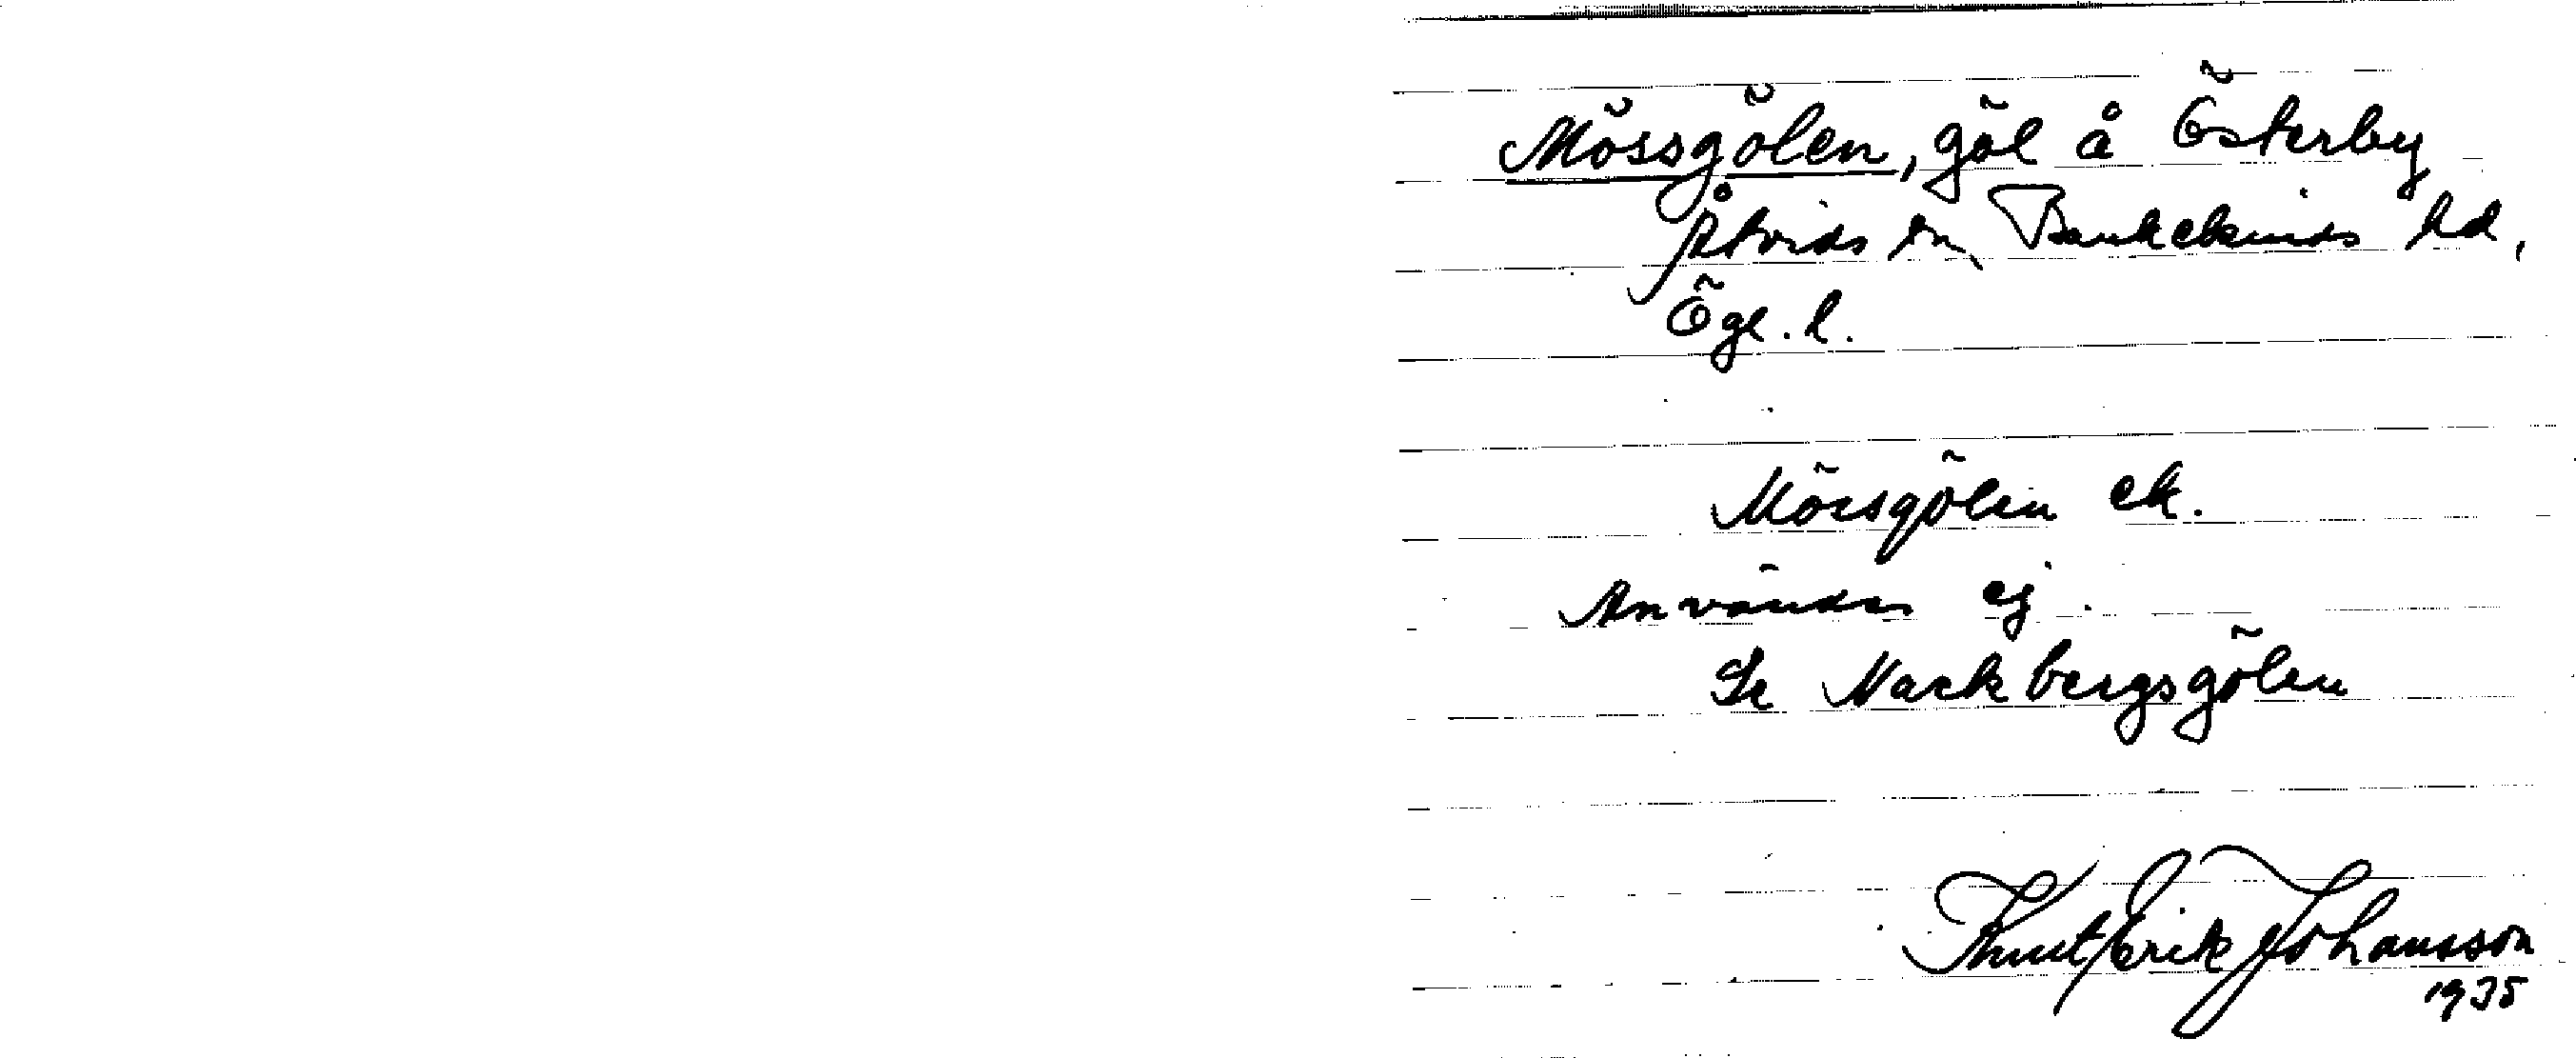 Mössgölen, göl å Österby
Åtvids sn, Bankekinds hd,
Ögl. l.
Mössgölen ek.
Användes ej.
Se Nackbergsgölen
Knut Erik Johansson
1935